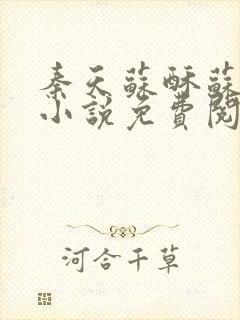 秦天蘇酥蘇
小說免費閱
河合千草